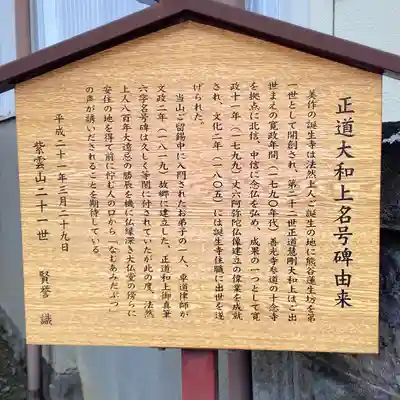 正道大和上名号碑由来
美作の誕生寺は法然上人ご誕生の地に熊谷蓮生坊を第
一世として開創され、第二十二世正道慧剛大和上はご出
世まえの寛政年間(一七九〇年代)善光寺参道の十念寺
を拠点に北信、中信に念仏を弘め、成果の一つとして寛
政十一年(一七九九)丈六阿弥陀仏像建立の偉業を成就
され、文化二年(一八〇五)には誕生寺住職に出世を遂
げられた。
当山ご留錫中に入門されたお弟子の一人、卓道律師が
文政二年(一八一九)故郷に建立した、正道和上御真筆
六字名号碑は久しく等閑に付されていたが此の度、法然
上人八百年大遠忌の勝辰を機に仏縁深き大仏堂の傍らに
安住の地を得て前に佇む人の口から「なむあみだぶつ」
の声が誘いだされることを期待している。
平成二十一年三月二十九日
紫雲山二十一世 賢誉 識